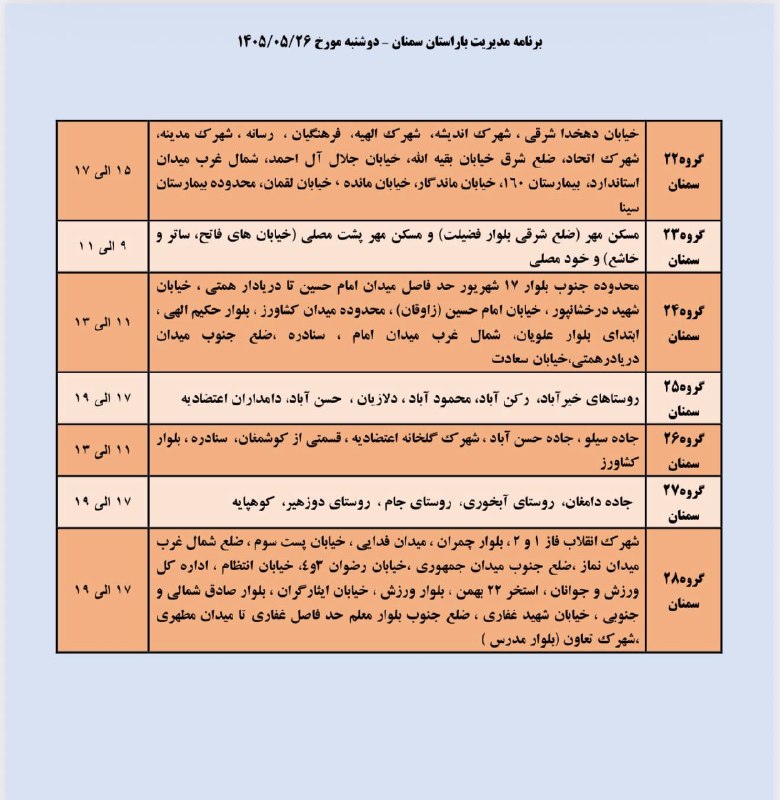 برنامه مدیریت باراستان سمنان - دوشنبه مورخ ۱۴۰۵/۰۵/۲۶
گروه۲۲ سمنان
خیابان دهخدا شرقی ، شهرک اندیشه، شهرک الهیه، فرهنگیان ، رسانه ، شهرک مدینه،
شهرک اتحاد، ضلع شرق خیابان بقیه الله، خیابان جلال آل احمد، شمال غرب میدان
استاندارد، بیمارستان ۱۶۰، خیابان ماندگار، خیابان مانده ، خیابان لقمان، محدوده بیمارستان
سینا
۱۵ الی ۱۷
گروه۲۳ سمنان
مسکن مهر (ضلع شرقی بلوار فضیلت) و مسکن مهر پشت مصلی (خیابان های فاتح، ساتر و
خاشع) و خود مصلی
۹ الی ۱۱
گروه۲۴ سمنان
محدوده جنوب بلوار ۱۷ شهریور حد فاصل میدان امام حسین تا دریادار همتی ، خیابان
شهید درخشانپور ، خیابان امام حسین (زاوقان) ، محدوده میدان کشاورز ، بلوار حکیم الهی ،
ابتدای بلوار علویان، شمال غرب میدان امام ، سنادره ،ضلع جنوب میدان
دریادرهمتی،خیابان سعادت
۱۱ الی ۱۳
گروه۲۵ سمنان
روستاهای خیرآباد، رکن آباد، محمود آباد ، دلازیان ، حسن آباد، دامداران اعتضادیه
۱۷ الی ۱۹
گروه۲۶ سمنان
جاده سیلو ، جاده حسن آباد ، شهرک گلخانه اعتضادیه ، قسمتی از کوشمغان، سنادره ، بلوار
کشاورز
۱۱ الی ۱۳
گروه۲۷ سمنان
جاده دامغان، روستای آبخوری، روستای جام ، روستای دوزهیر، کوهپایه
۱۷ الی ۱۹
گروه۲۸ سمنان
شهرک انقلاب فاز ۱ و ۲ ، بلوار چمران ، میدان فدایی ، خیابان پست سوم ، ضلع شمال غرب
میدان نماز ،ضلع جنوب میدان جمهوری ،خیابان رضوان ۳و٤، خیابان انتظام ، اداره کل
ورزش و جوانان ، استخر ۲۲ بهمن ، بلوار ورزش ، خیابان ایثارگران ، بلوار صادق شمالی و
جنوبی ، خیابان شهید غفاری ، ضلع جنوب بلوار معلم حد فاصل غفاری تا میدان مطهری
،شهرک تعاون (بلوار مدرس )
۱۷ الی ۱۹